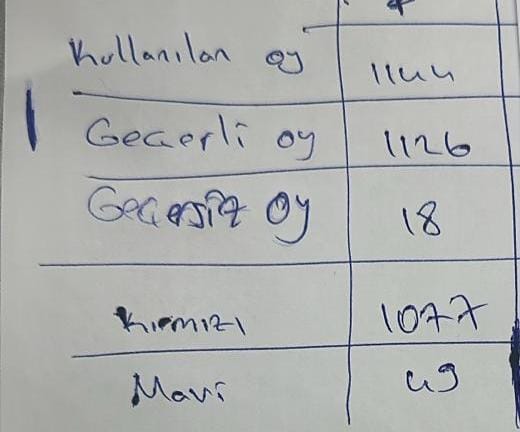 Kullanılan oy 1144
Geçerli oy 1126
Geçersiz oy 18
Kırmızı 1077
Mavi 49